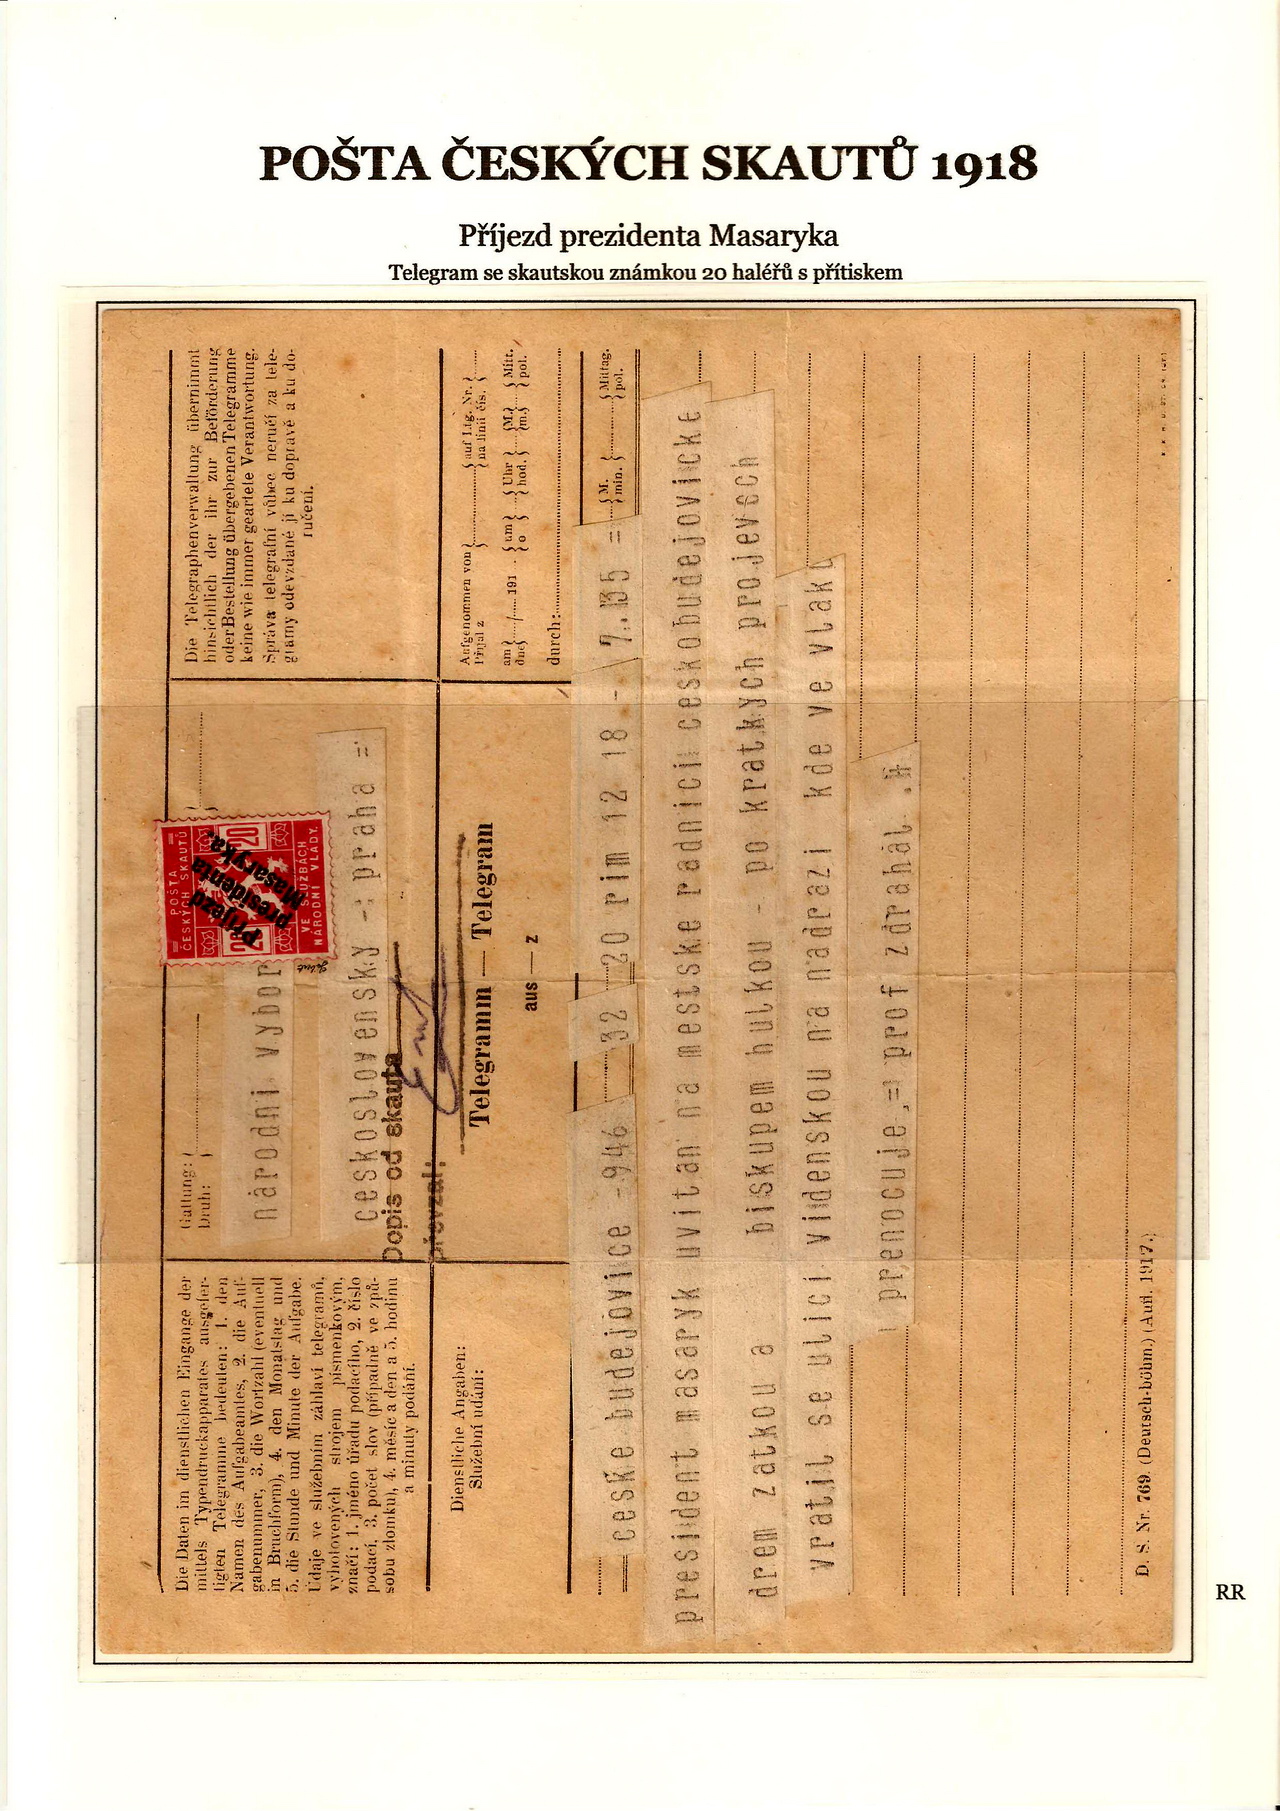 POŠTA ČESKÝCH SKAUTŮ 1918
Příjezd prezidenta Masaryka
Telegram se skautskou známkou 20 haléřů s přítiskem
Die Daten im dienstlichen Eingange der
mittels Typendruckapparates ausgefer-
tigten Telegramme bedeuten: 1. den
Namen des Aufgabeamtes, 2. die Auf-
gabenummer, 3. die Wortzahl (eventuell
in Bruchform), 4. den Monatstag und
5. die Stunde und Minute der Aufgabe.
Údaje ve služebním záhlaví telegramů,
vyhotovených strojem písmenkovým,
značí: 1. jméno úřadu podacího, 2. číslo
podací, 3. počet slov (případně ve způ-
sobu zlomku), 4. měsíc a den a 5. hodinu
a minuty podání.
Gattung:
Druh:
POŠTA
ČESKÝCH SKAUTŮ
20
20
VE SLUŽBÁCH
NÁRODNÍ VLÁDY.
Příjezd
presidenta
Masaryka.
národni vybor
ceskoslovensky -: praha =
Dopis od skauta
převzal:
Die Telegraphenverwaltung übernimmt
hinsichtlich der ihr zur Beförderung
oder Bestellung übergebenen Telegramme
keine wie immer geartete Verantwortung.
Správa telegrafní vůbec neručí za tele-
gramy odevzdané jí ku dopravě a ku do-
ručení.
Dienstliche Angaben:
Služební udání:
Telegramm — Telegram
aus — z
Aufgenommen von
Přijal z
auf Ltg. Nr.
na linii čís.
am
dne
/ 191
um
o
Uhr
hod.
M.
m.
Mitt.
pol.
durch:
M.
min.
Mittag.
pol.
ceske budejovice -946 32 20 rim 12 18 - 7.35 =
president masaryk uvitan na mestske radnici ceskobudejovicke
drem zatkou a biskupem hulkou - po kratkych projevech
vratil se ulici videnskou na nadrazi kde ve vlaku
prenocuje.= prof zdrahal .#
D. S. Nr. 769. (Deutsch-böhm.) (Aufl. 1917.)
RR